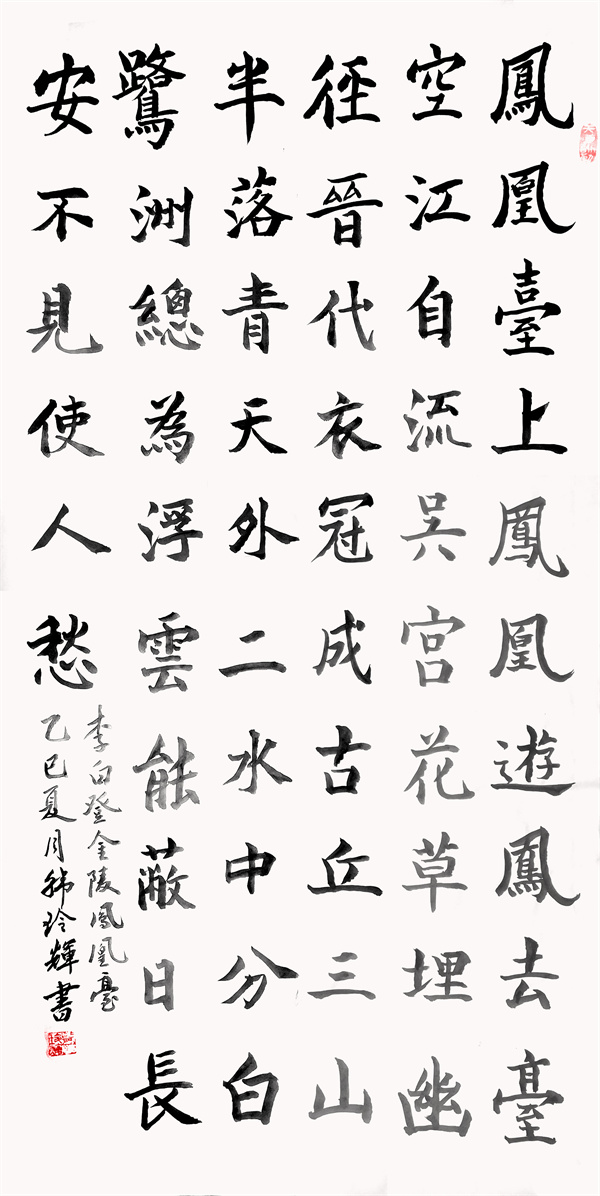 鳳凰臺上鳳凰遊鳳去臺
空江自流吳宮花草埋幽
徑晉代衣冠成古丘三山
半落青天外二水中分白
鷺洲總為浮雲能蔽日長
安不見使人愁
李白登金陵鳳凰臺
乙巳夏月 玲輝書